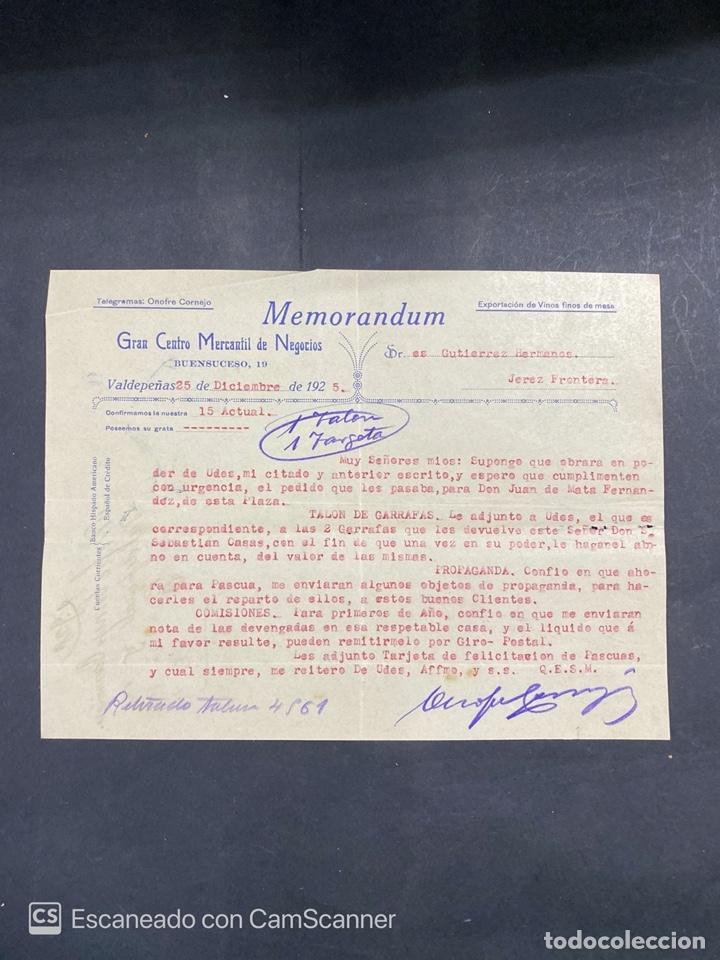 Telegramas: Onofre Cornejo
Exportación de Vinos finos de mesa
Memorandum
Gran Centro Mercantil de Negocios
BUENSUCESO, 19
Sr. es Gutierrez Hermanos.
Jerez Frontera.
Valdepeñas 25 de Diciembre de 1925.
Confirmamos la nuestra 15 Actual.
Poseemos su grata ---------
1 Talon
1 Targeta
Cuentas Corrientes
Banco Hispano Americano
Español de Crédito
Muy Señores mios: Supongo que obrara en po-
der de Udes, mi citado y anterior escrito, y espero que cumplimenten
con urgencia, el pedido que les pasaba, para Don Juan de Mata Fernan-
dez, de esta Plaza.
TALON DE GARRAFAS. Le adjunto a Udes, el que es
correspondiente, a las 2 Garrafas que les devuelve este Señor Don S.
Sebastian Casas, con el fin de que una vez en su poder, le haganel abo-
no en cuenta, del valor de las mismas.
PROPAGANDA. Confio en que aho-
ra para Pascua, me enviaran algunos objetos de propaganda, para ha-
cerles el reparto de ellos, a estos buenos Clientes.
COMISIONES. Para primeros de Año, confio en que me enviaran
nota de las devengadas en esa respetable casa, y el liquido que á
mi favor resulte, pueden remitirmelo por Giro- Postal.
Les adjunto Tarjeta de felicitacion de Pascuas,
y cual siempre, me reitero De Udes, Affmo, y s.s. Q.E.S.M.
Retirado talon 4861
CS Escaneado con CamScanner
todocoleccion